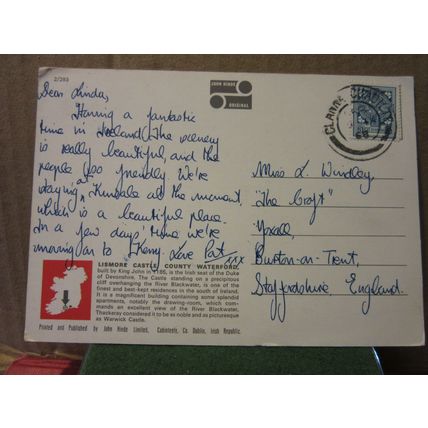 2/293
JOHN HINDE
ORIGINAL
Dear Linda,
Having a fantastic
time in Ireland. The scenery
is really beautiful, and the
people so friendly. We're
staying at Kinsale at the moment,
which is a beautiful place.
In a few days' time we're
moving on to Kerry. Love Pat xxx
Miss L. Windley,
"The Croft"
Yoxall,
Burton-on-Trent,
Staffordshire, England.
LISMORE CASTLE, COUNTY WATERFORD,
built by King John in 1185, is the Irish seat of the Duke
of Devonshire. The Castle standing on a precipitous
cliff overhanging the River Blackwater, is one of the
finest and best-kept residences in the south of Ireland.
It is a magnificent building containing some splendid
apartments, notably the drawing-room, which com-
mands an excellent view of the River Blackwater.
Thackeray considered it to be as noble and as picturesque
as Warwick Castle.
Printed and Published by John Hinde Limited, Cabinteely, Co. Dublin, Irish Republic.